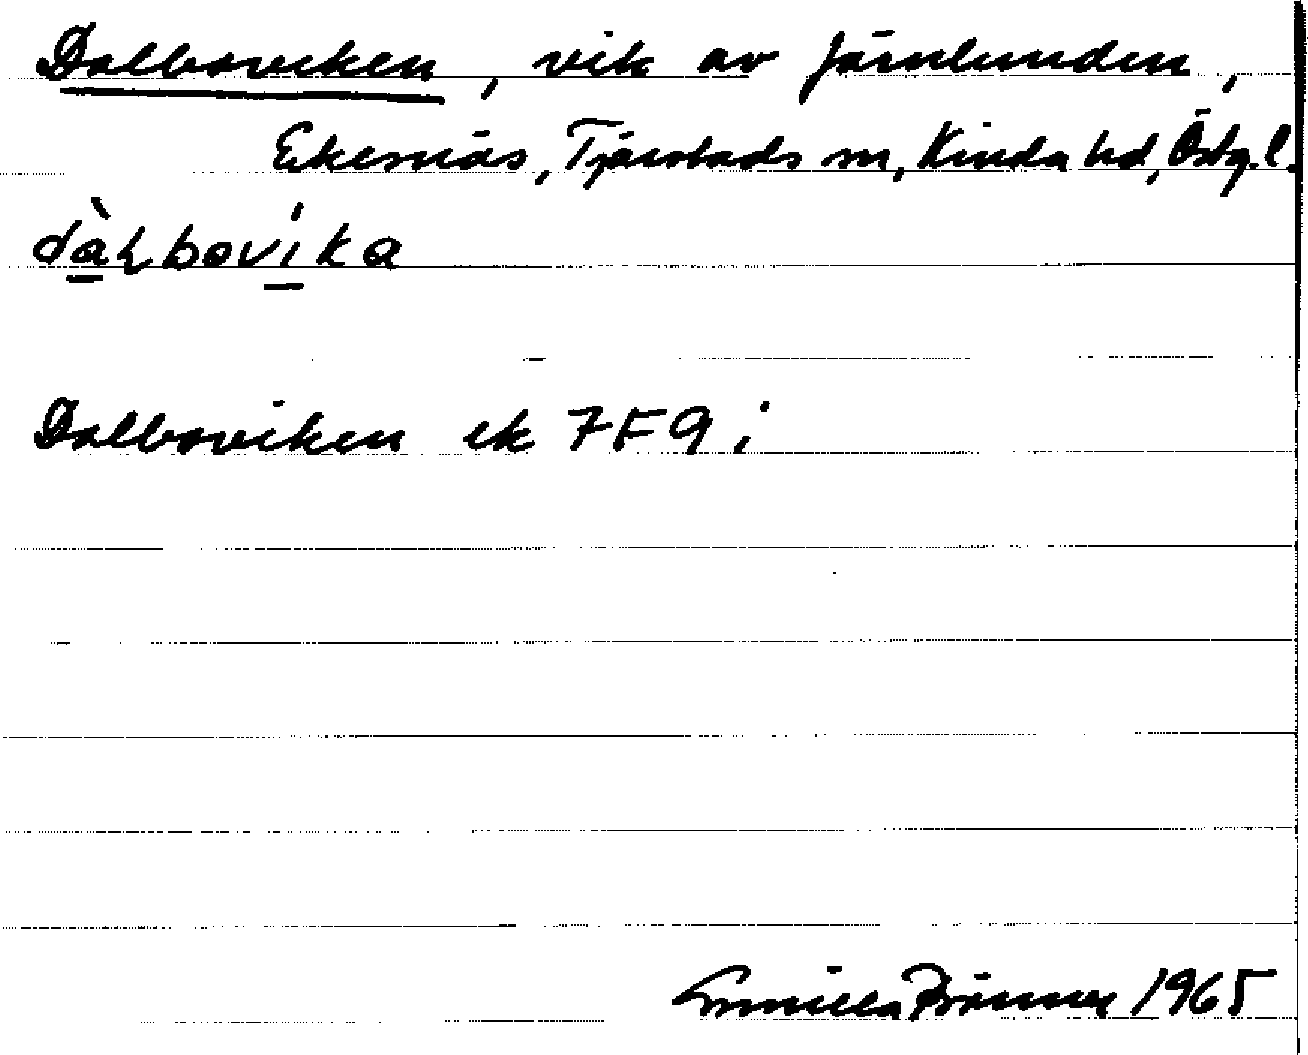 Dalboviken, vik av Järnlunden,
Ekenäs, Tjärstads sn, Kinda hd, Östg. l.
dàɽbovíka
Dalboviken ek 7F9i
Gunilla Brånner 1965